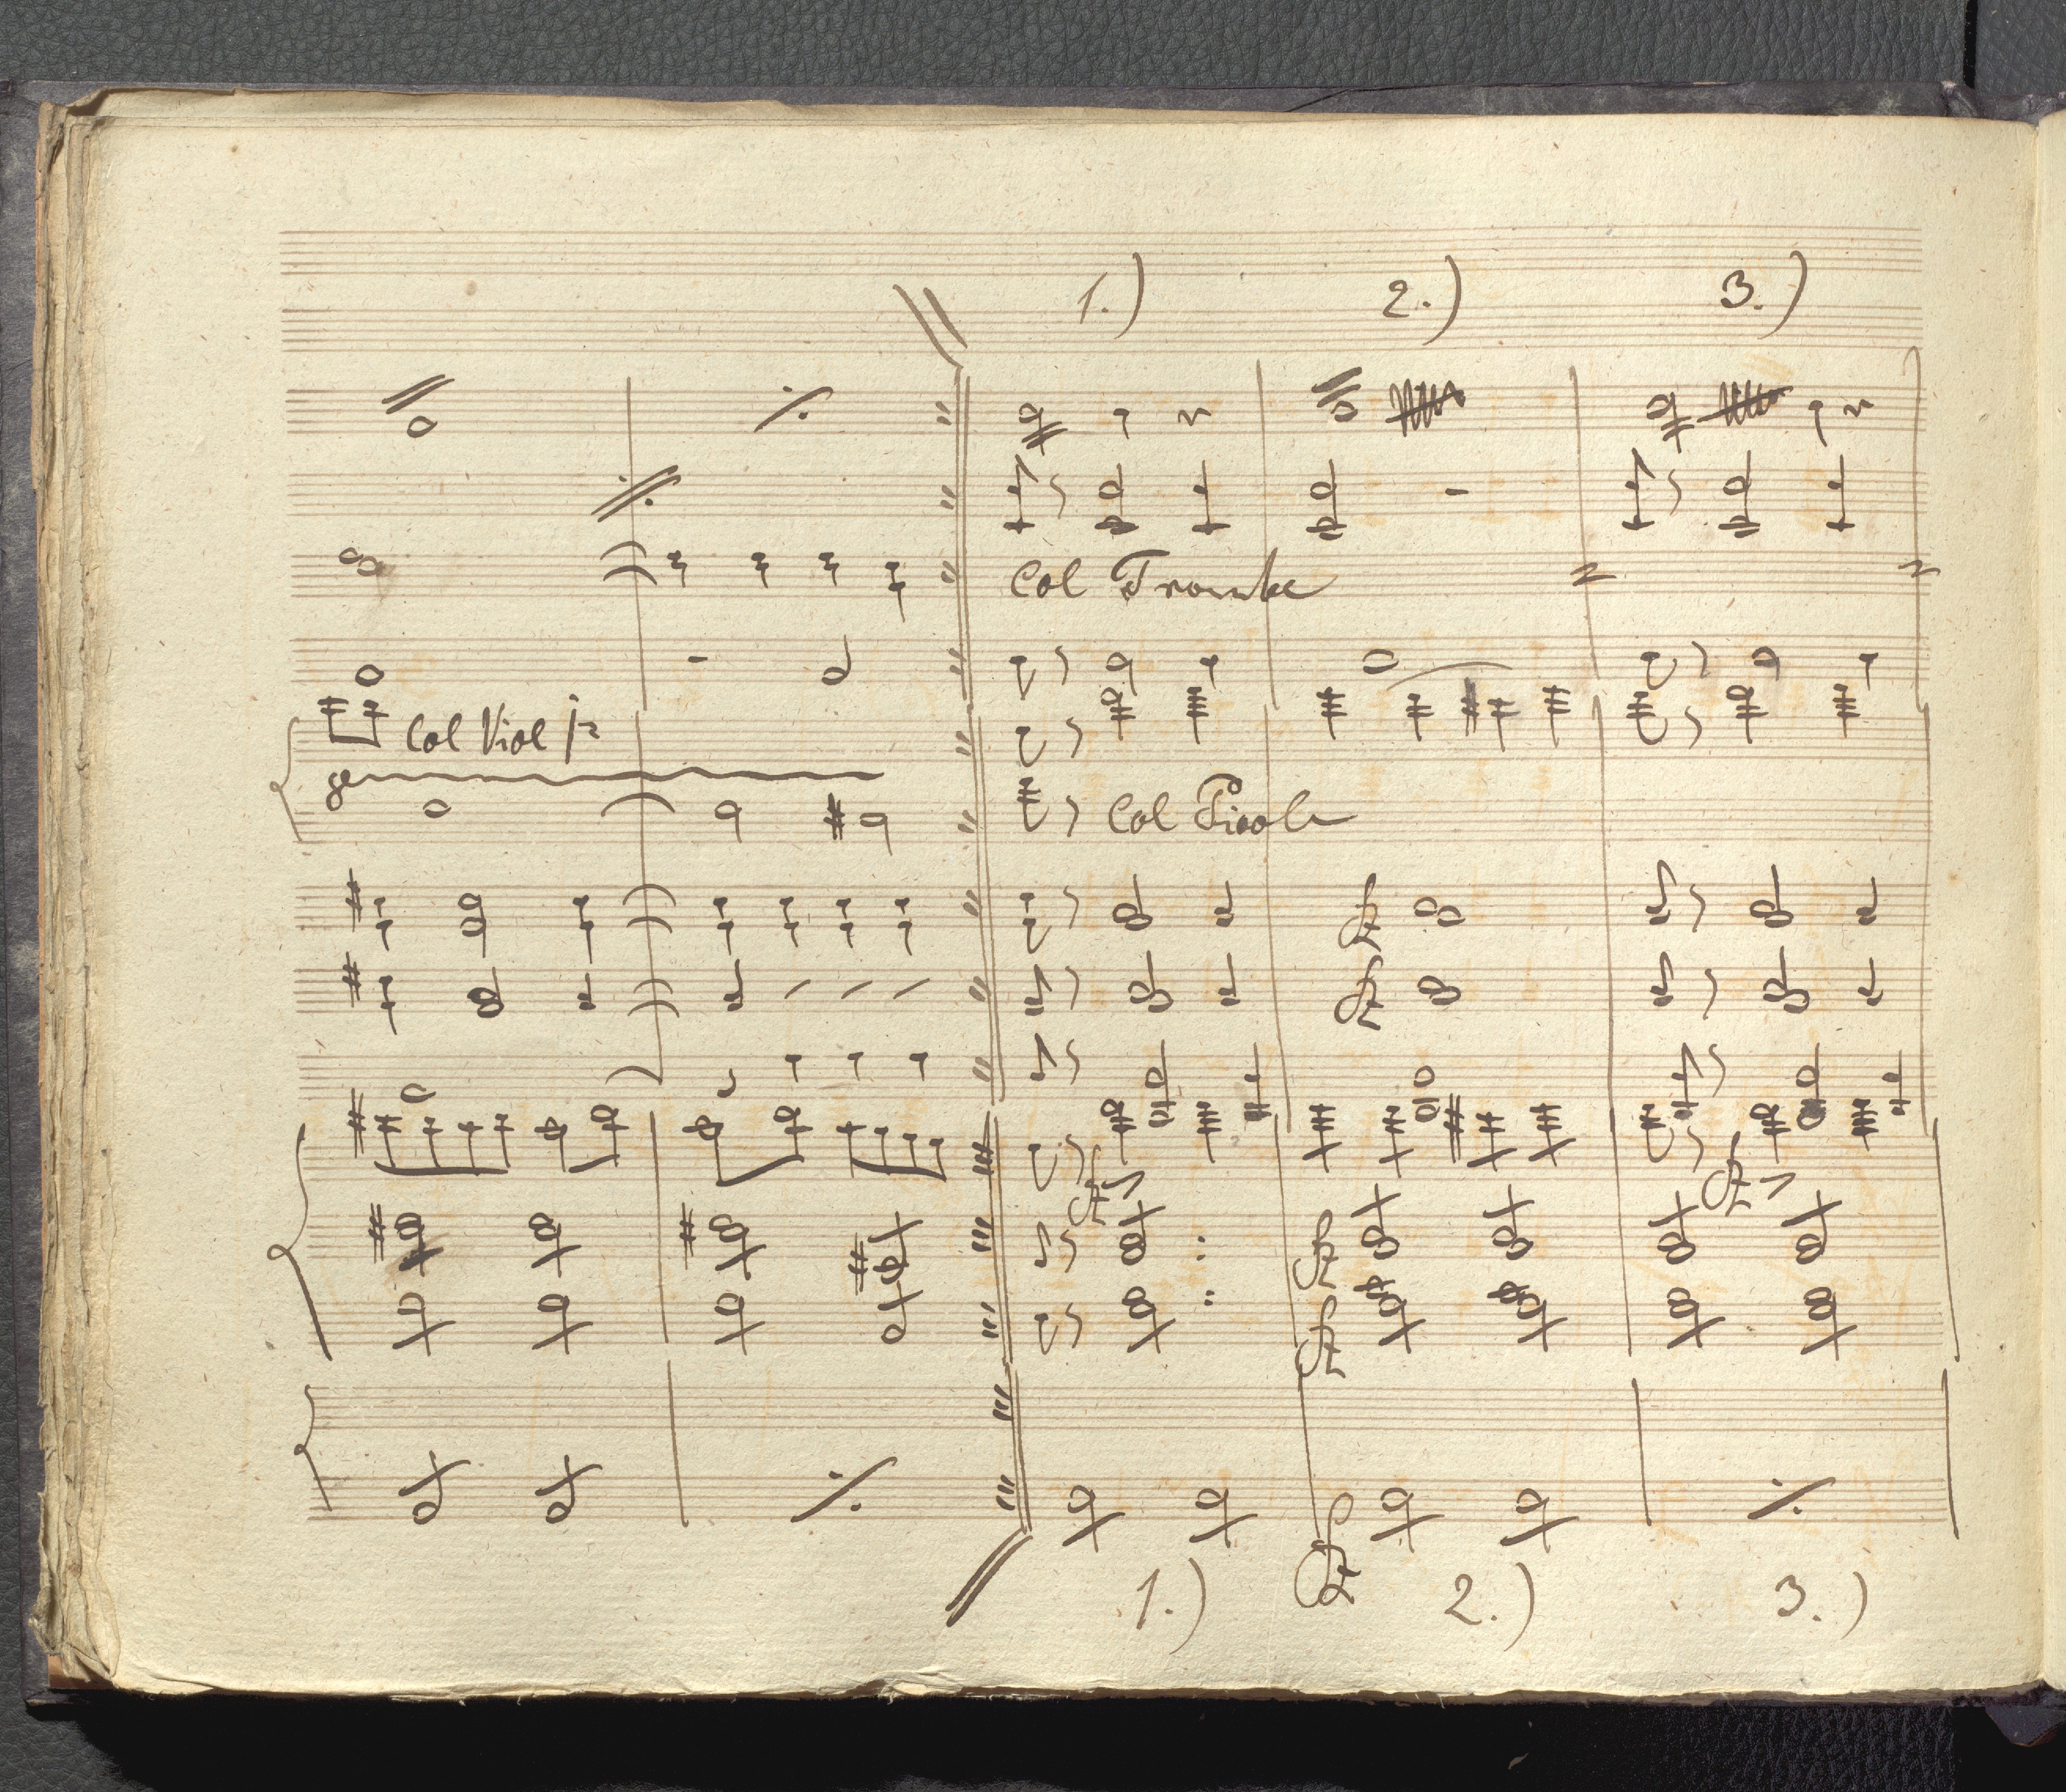 1.) 2.) 3.)
Col Trombe
Col Viol 1º
Col Picolo
1.) 2.) 3.)